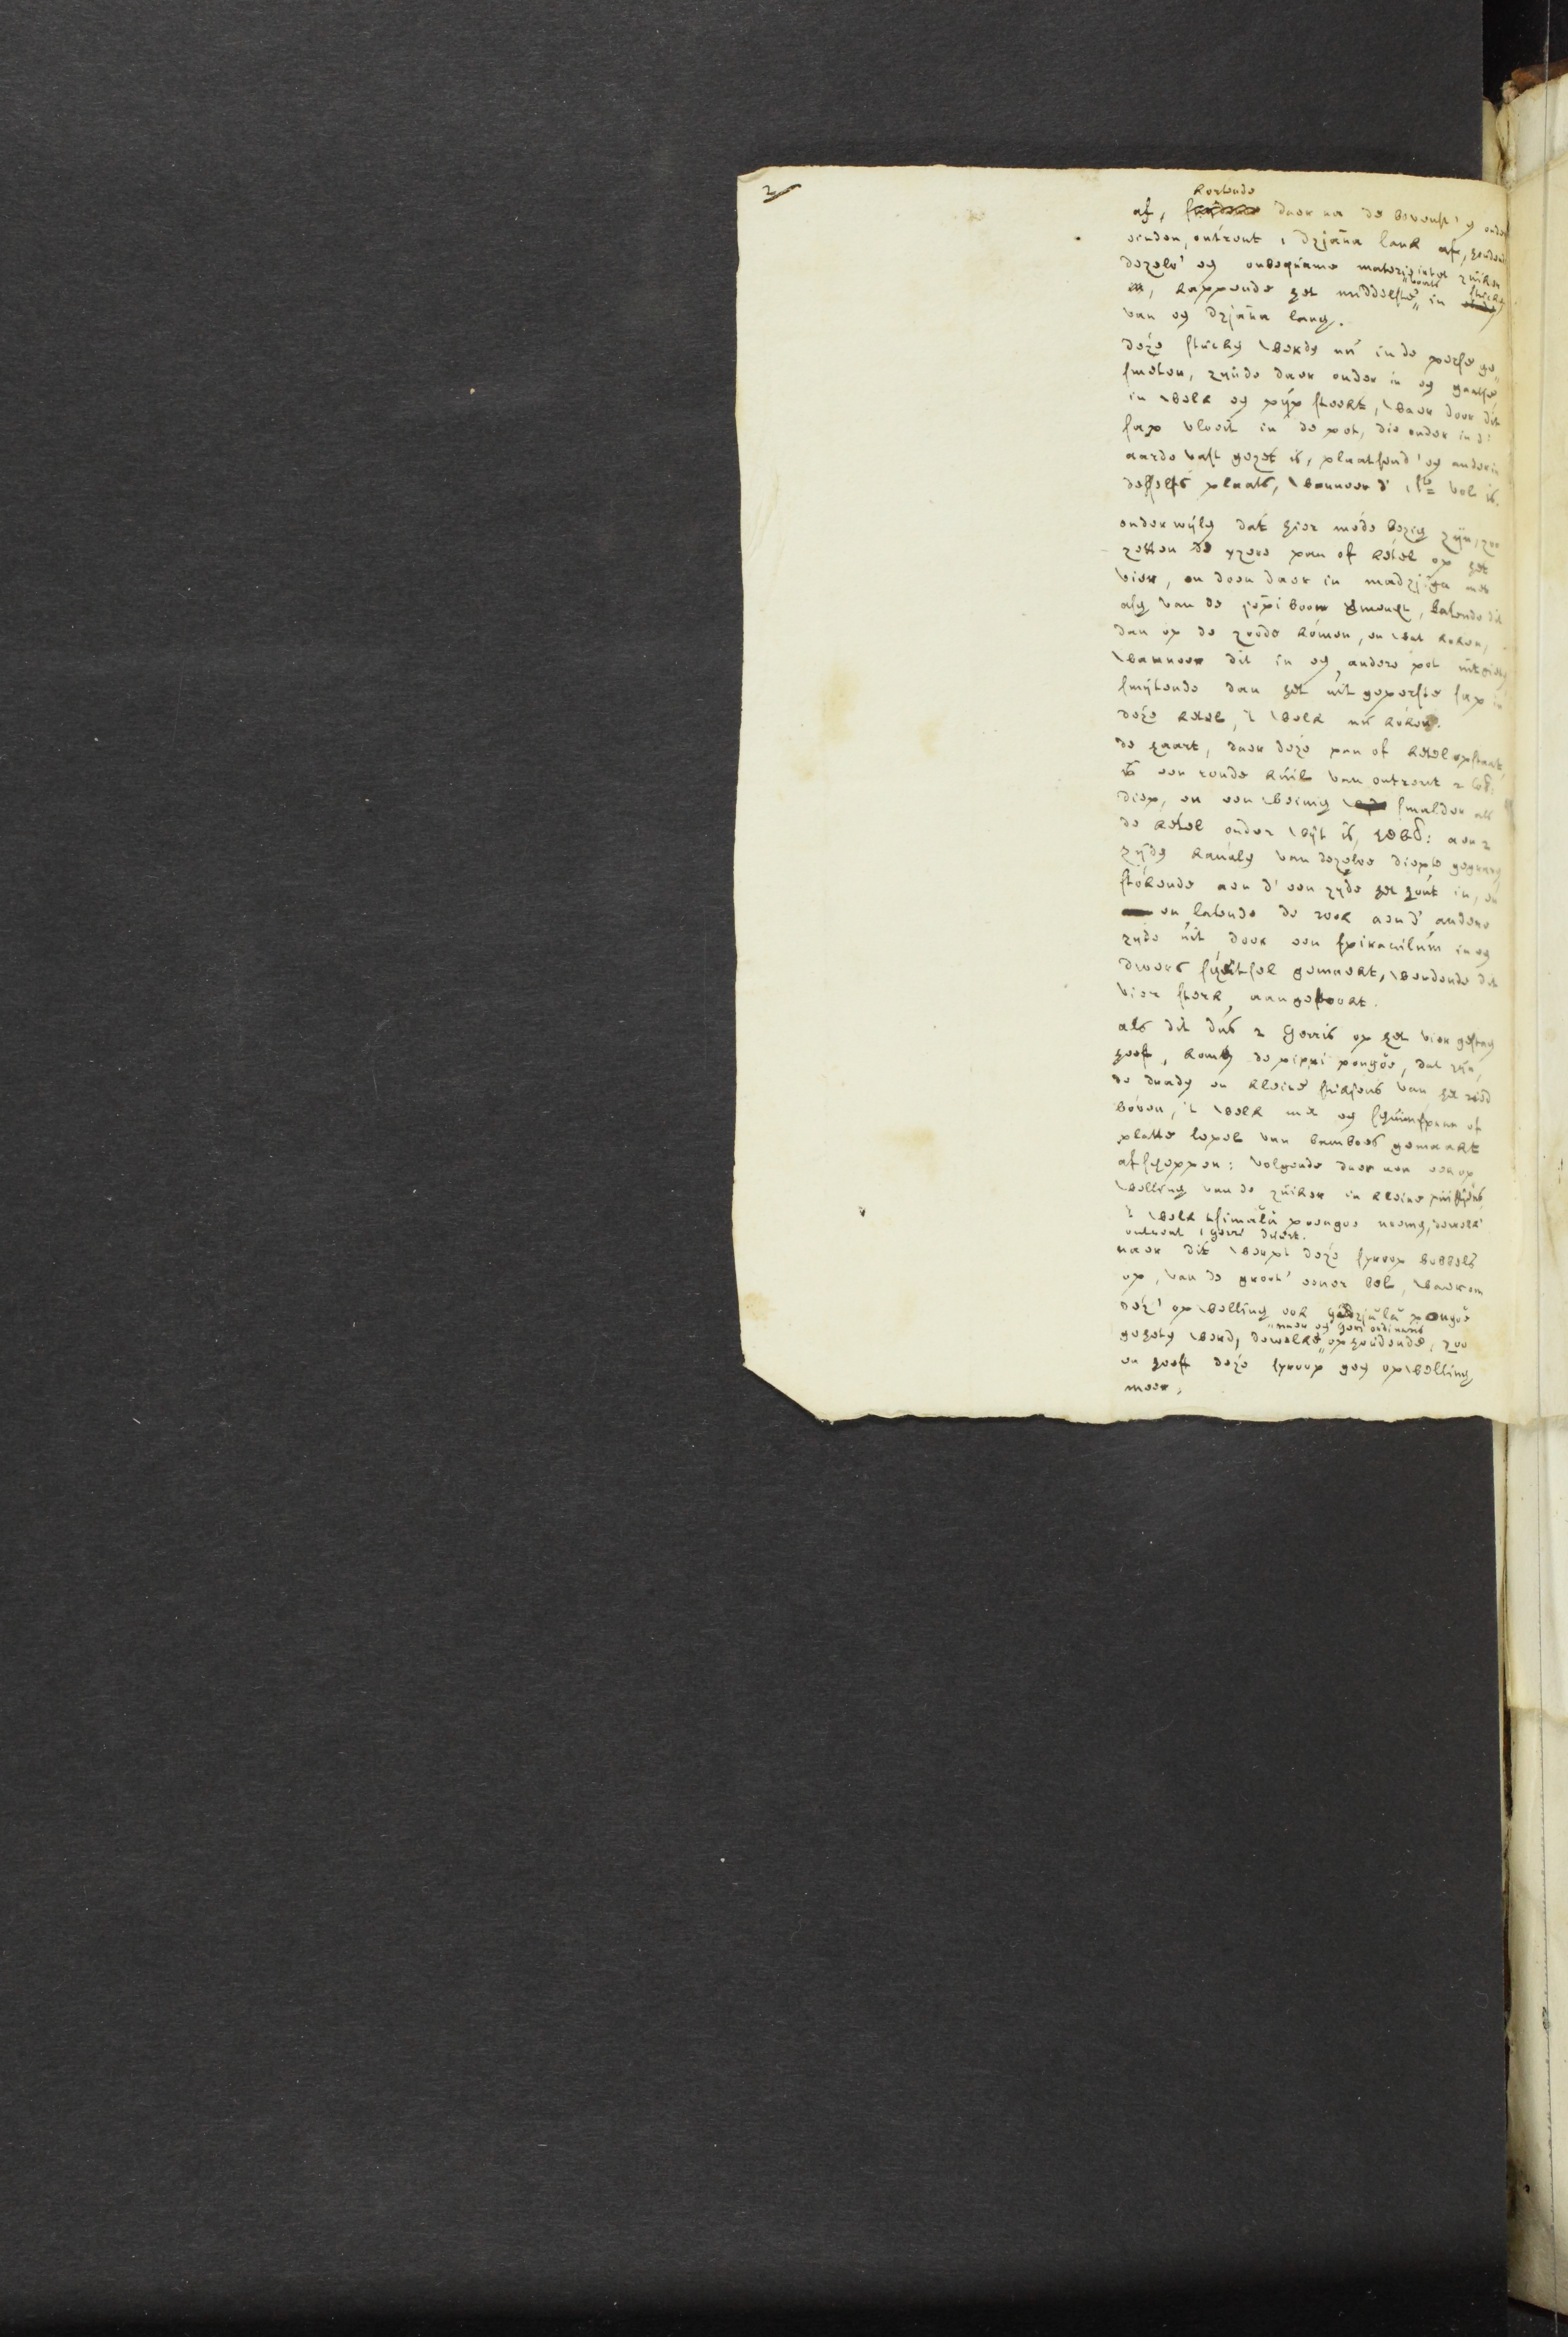 2
kortende
af, daar na de bovenst' en onder
einden, ontrent 1 dzjăna lank af, houdende
dezelv' en onbequame materje in het zuiker
kappende het middelste in stucken
van en dzjăna lang.
deze stucken werden nu in de perse ge„
smeten, zynde daar onder in en gaatse,
in welk en pyp steekt, waar door dit
sap vloeit in de pot, die onder in d'
aarde vast gezet is, plaatsend' en ander in
desselfs plaats, wanneer d' 1ste vol is.
onderwylen dat hier mede bezig zyn, zoo
zetten de yzere pan of ketel op het
vier, en doen daar in madzjiga met
asch van de boom gemengt, latende dit
dan op de zoode komen, en wat koken,
wanneer dit in en andere pot uitgieten
smytende dan het uit geperste sap in
deze ketel, 't welk nu koken.
de haart, daar deze pan of ketel op staat,
is een ronde kuil van ontrent 2
diep, en een weinig smalder als
de ketel onder wyt is, hebb: aen 2
zyden kanalen van dezelve diepte gegraven
stokende aen d' een zyde het hout in, en
en latende de rook aen d' andere
zyde uit door een spiraculum in en
dwars schutsel gemaekt, werdende dit
vier sterk aangestookt.
als dit dus 2 gerris op het vier gestaen
heeft, komen de pippi pongŏe, dat zyn,
de draden en kleine stukjens van het riedt
boven, 't welk met en schuimspaan of
platte lepel van bamboes gemaakt
afscheppen: volgende daar aen een op
welling van de zuiker in kleine puistjens,
't welk tsimălă poongoe noemen, dewelk'
ontrent 1 gerri duert.
naar dit werpt deze syroop bobbels
op, van de groot' eener bel, waarom
dez' opwelling ook pongŏe
„maar en gerri ordinaris
geheten werd, dewelke „ophoudende, zoo
en heeft deze syroop geen opwelling
meer,